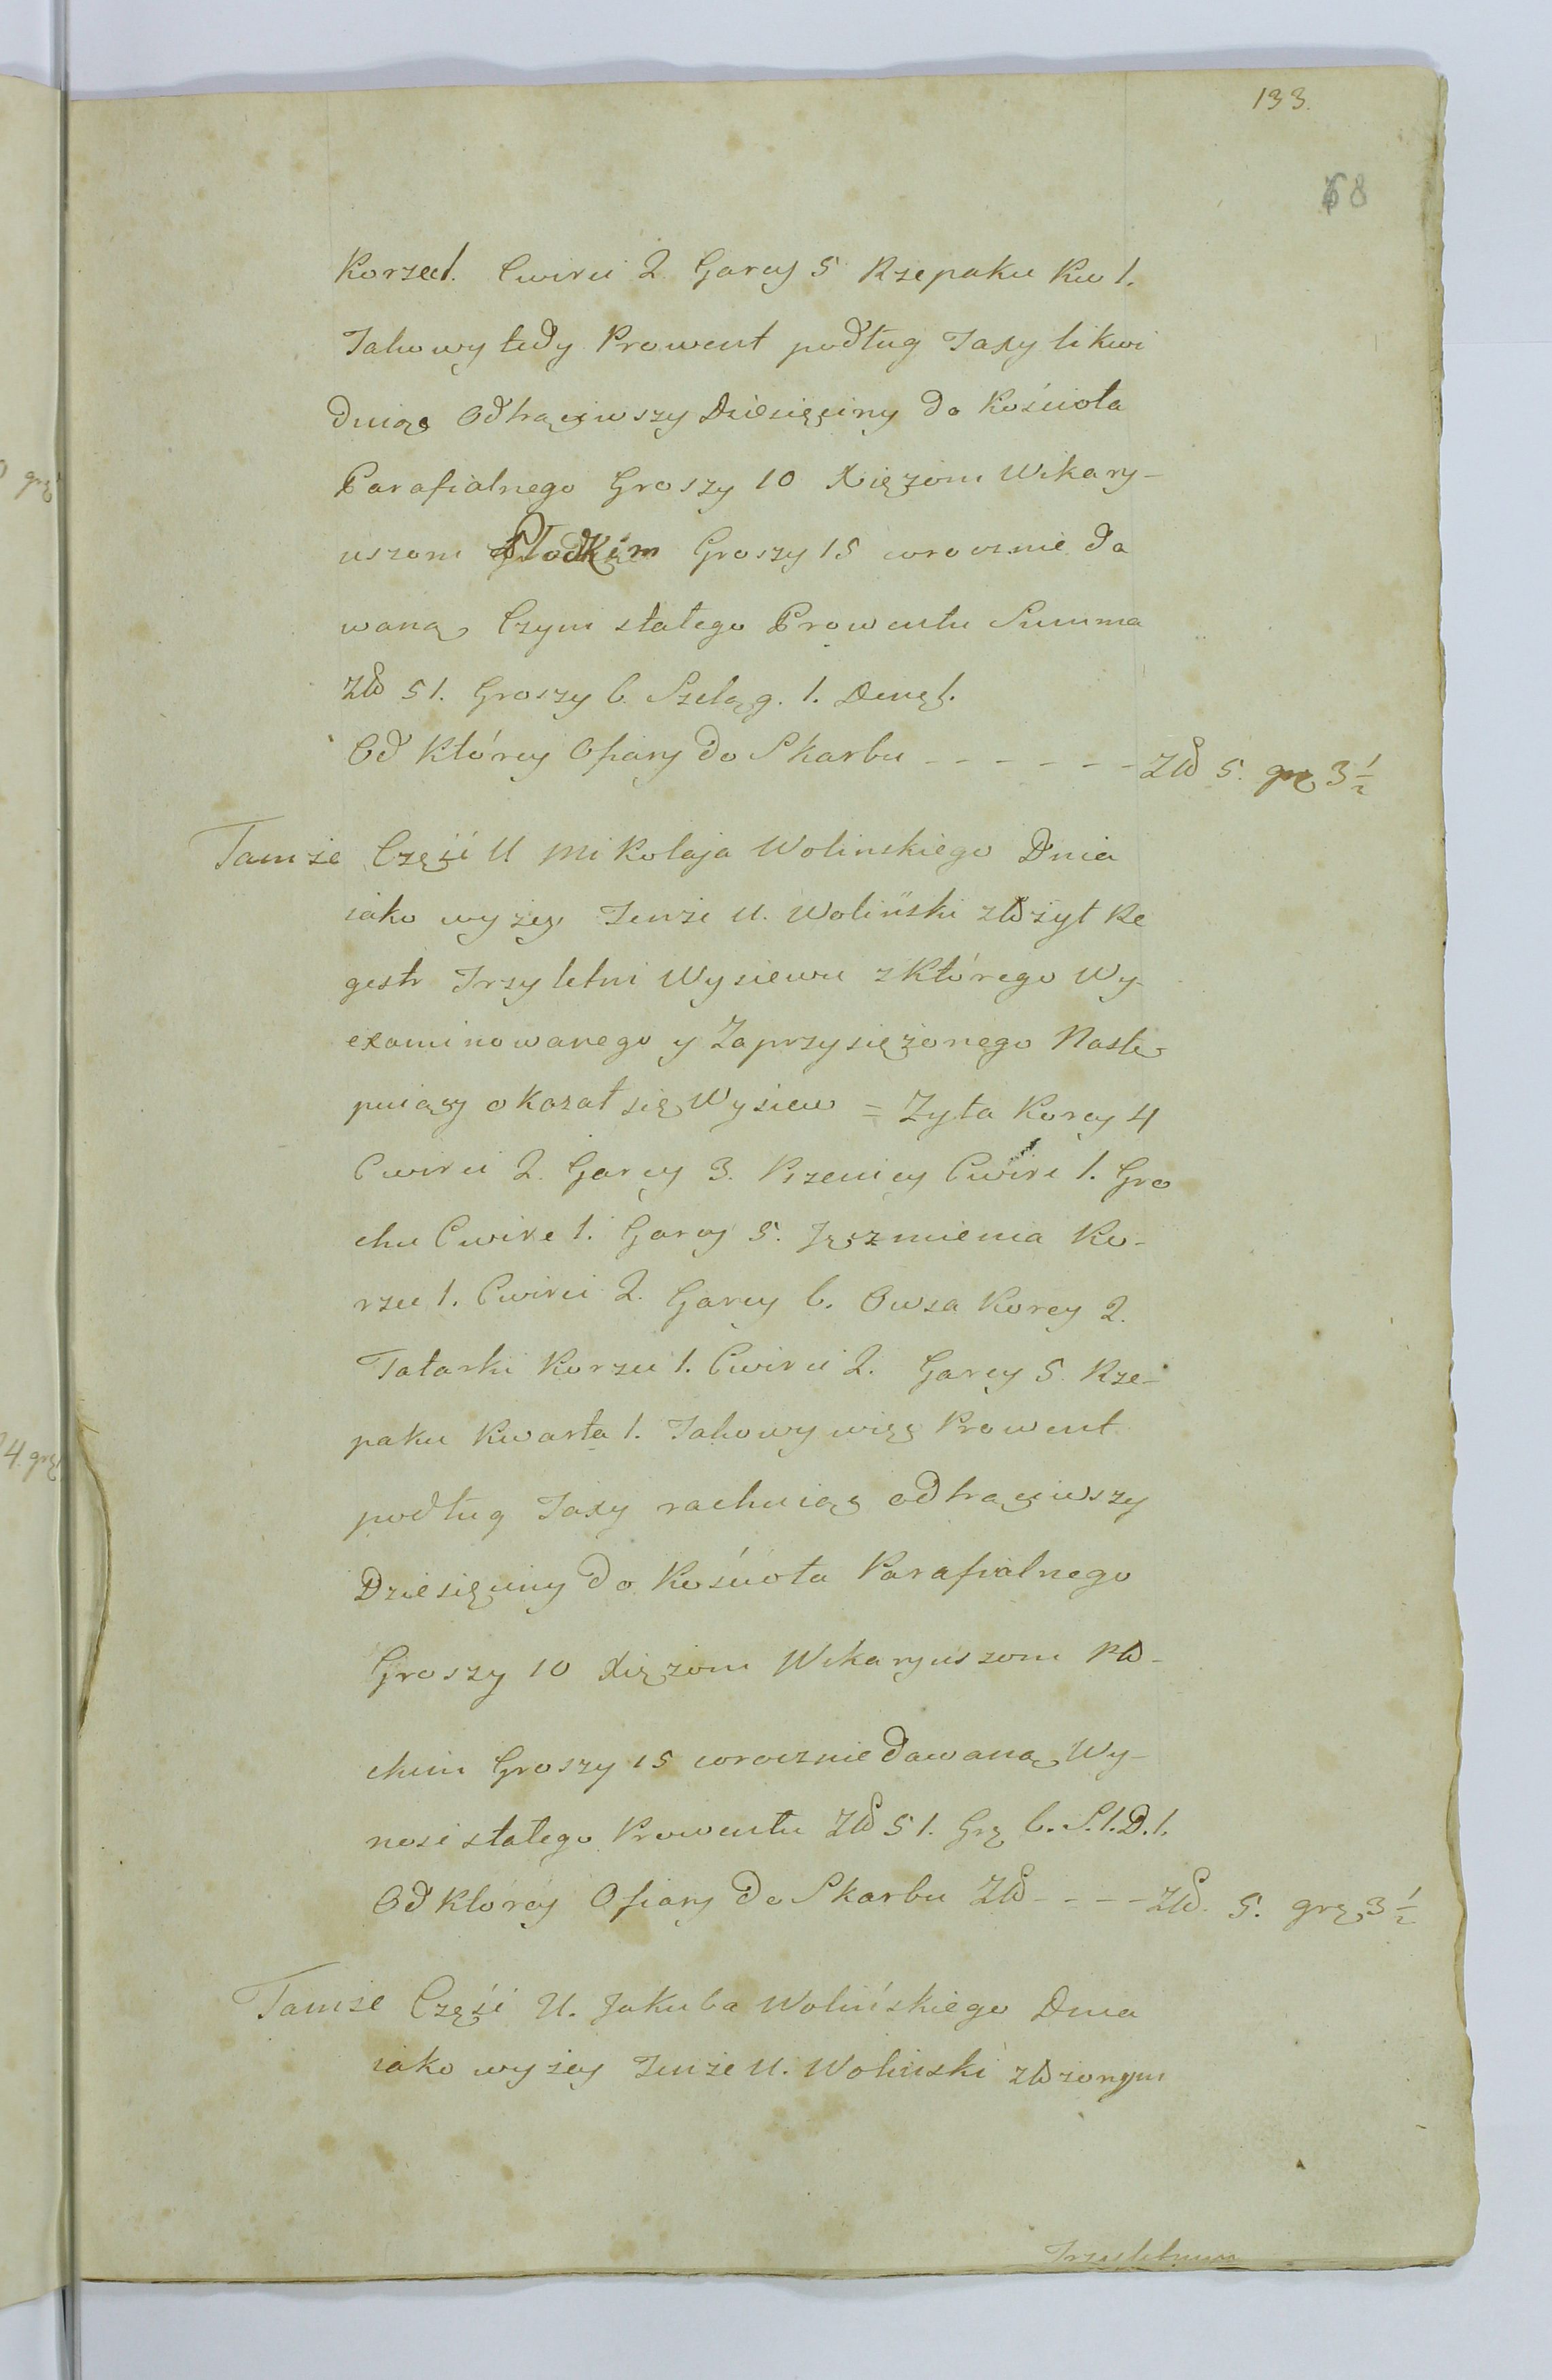 133.
68
Korzec 1. Cwirci 2 Garcy 5 Rzepaku Kw 1.
Takowy tedy Prowent podług Taxy likwi
duiąc Odtrąciwszy Dziesięciny do Kościoła
Parafialnego Groszy 10 Xiężom Wikary-
uszom Płockim Groszy 15 corocznie da
waną, Czyni stałego Prowentu Summa
Zło 51. Groszy 6. Szeląg. 1. Denę 1.
Od Którey Ofiary do Skarbu - - - - - - Zło 5. grę 3 1/2
Tamże Część U Mikołaja Wolinskiego Dnia
iako wyżey Tenże U. Woliński złożył Re
gestr Trzyletni Wysiewu z Którego Wy-
examinowanego y Zaprzysiężonego Nastę-
puiący okazał się Wysiew = Zyta Korcy 4
Cwirci 2. Garcy 3. Pszenicy Cwirć 1. Gro
chu Cwirc 1. Garcy 5. Jęczmienia Ko-
rzec 1. Cwirci 2. Garcy 6. Owsa Korcy 2.
Tatarki Korzec 1. Cwirci 2. Garcy 5. Rze-
paku Kwarta 1. Takowy więc Prowent
podług Taxy rachuiąc odtrąciwszy
Dziesięciny do Kościoła Parafialnego
Groszy 10 Xiężom Wikaryuszom Pło-
ckim Groszy 15 corocznie dawaną, Wy-
nosi stałego Prowentu Zło 51. Grę 6. S. 1. D. 1.
Od Którey Ofiary do Skarbu Zło - - - - Zło. 5. grę 3 1/2
Tamże Część U. Jakuba Wolińskiego Dnia
iako wyżey Tenże U. Woliński złożonym
Trzyletnim